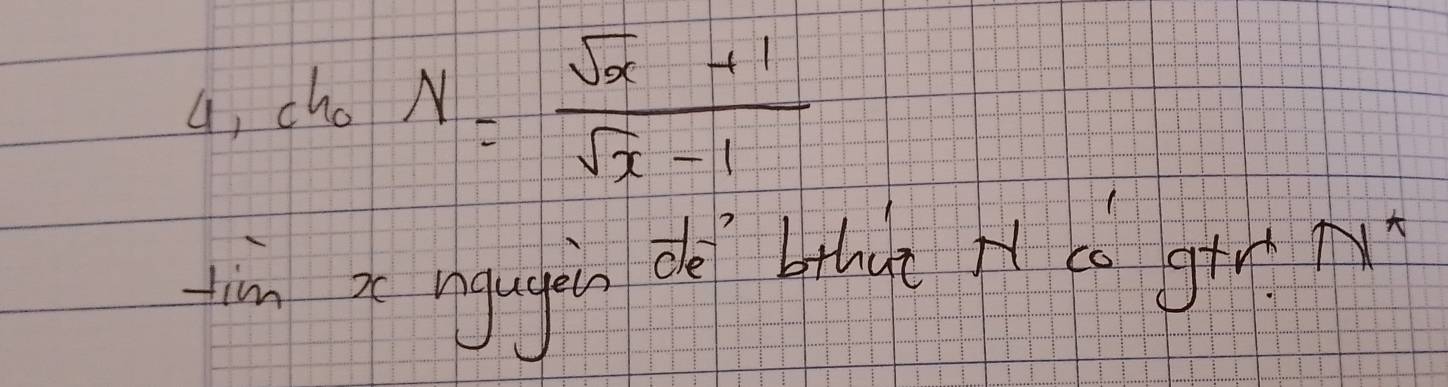 4, cho N = \frac{\sqrt{x} + 1}{\sqrt{x} - 1}
tìm x nguyên để bthức N có gtrị N*